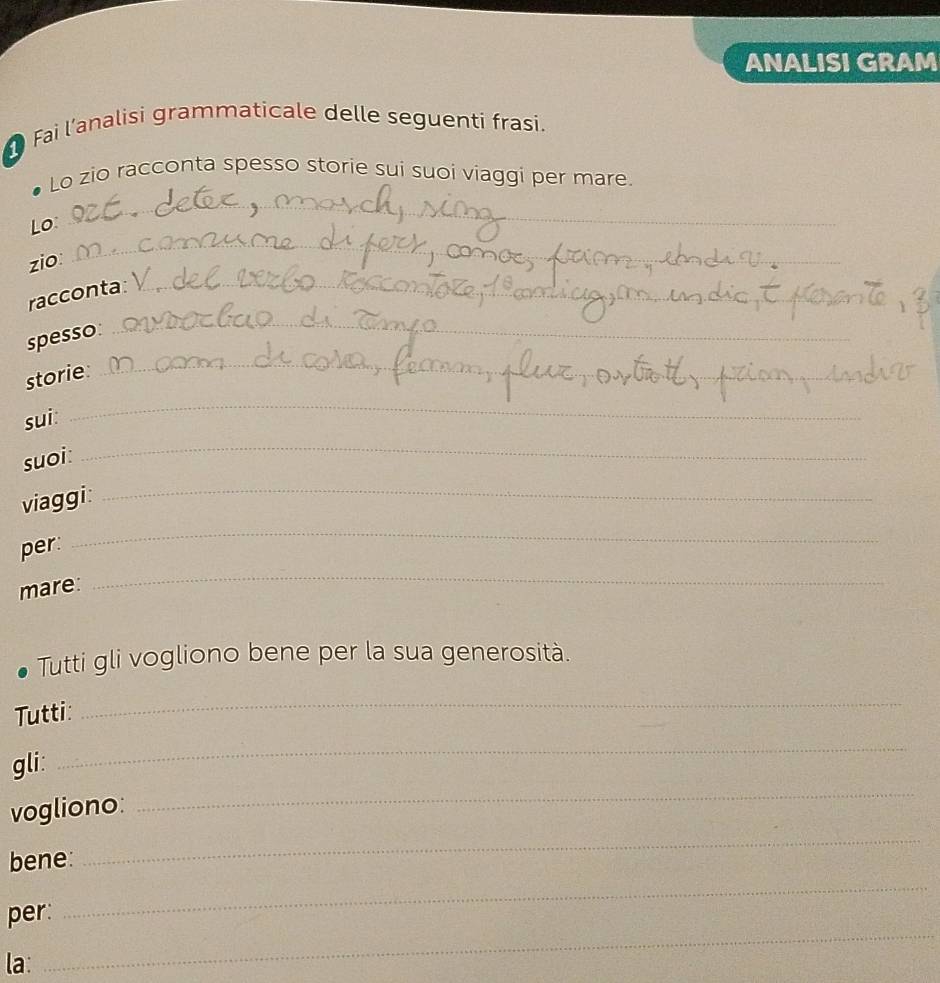 ANALISI GRAM
1 Fai l'analisi grammaticale delle seguenti frasi.
• Lo zio racconta spesso storie sui suoi viaggi per mare.
Lo: art. deter, masch, sing
zio: n. comune di pers,
racconta: V. del verbo raccontare, 1ª coniug, m. indic, t presente, 3
spesso: avverbio di tempo
storie: n com di cosa, femm, plur, astratt, prim, indiv
sui:
suoi:
viaggi:
per:
mare:
• Tutti gli vogliono bene per la sua generosità.
Tutti:
gli:
vogliono:
bene:
per:
la: